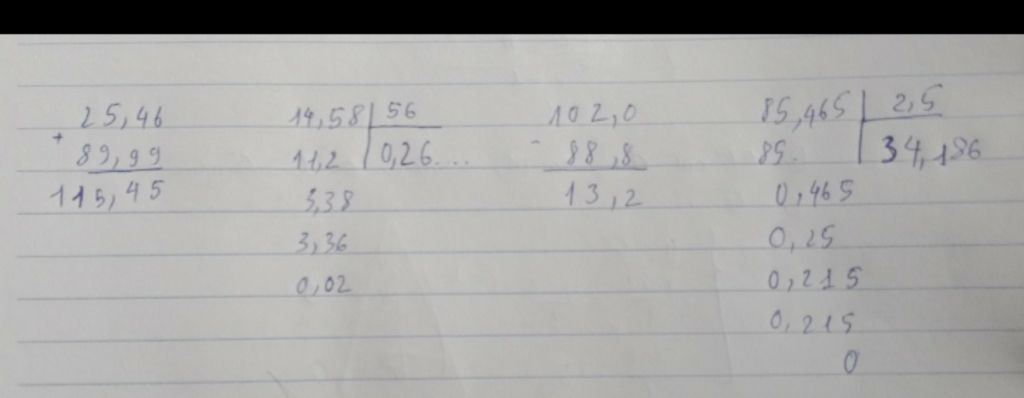 25,46
+
89,99
115,45
14,58 56
11,2 0,26...
3,38
3,36
0,02
102,0
-
88,8
13,2
85,465 2,5
85. 34,186
0,465
0,25
0,215
0,215
0